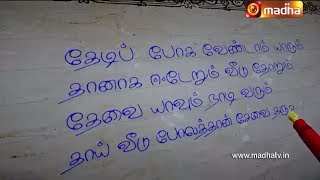 madha
தேடிப் போக வேண்டாம் யாரும்
தானாக ஈடேறும் வீடு தோறும்
தேவை யாவும் நாடி வரும்
தாய் வீடு போலத்தான் சேவை தரும்
www.madhatv.in